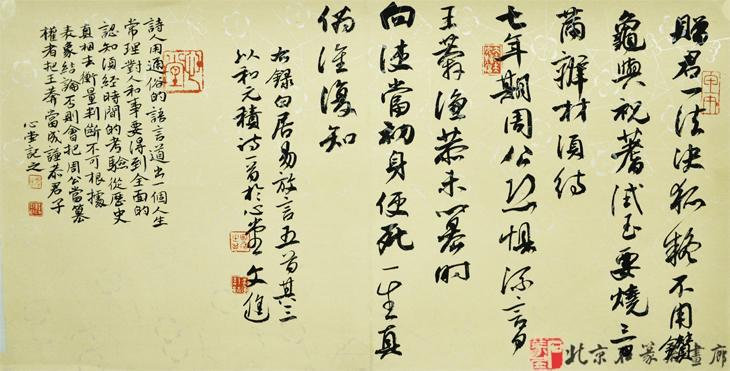 贈君一法决狐疑不用鑽
龜與祝蓍试玉要燒三日
滿辨材須待
七年期周公恐懼流言日
王莽謙恭未篡時
向使當初身便死一生真
偽誰復知
右錄白居易放言五首其三
以和元積詩一首於心堂文進
詩人用通俗的語言道出一個人生
常理對人和事要得到全面的
認知須經時間的考驗從歷史
真相去衡量判断不可根據
表象結論否則會把周公當篡
權者把王莽當成謙恭君子
心堂記之
北京 篆 畫廊